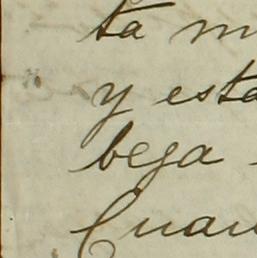 ta m
y esta
beja
Cuan